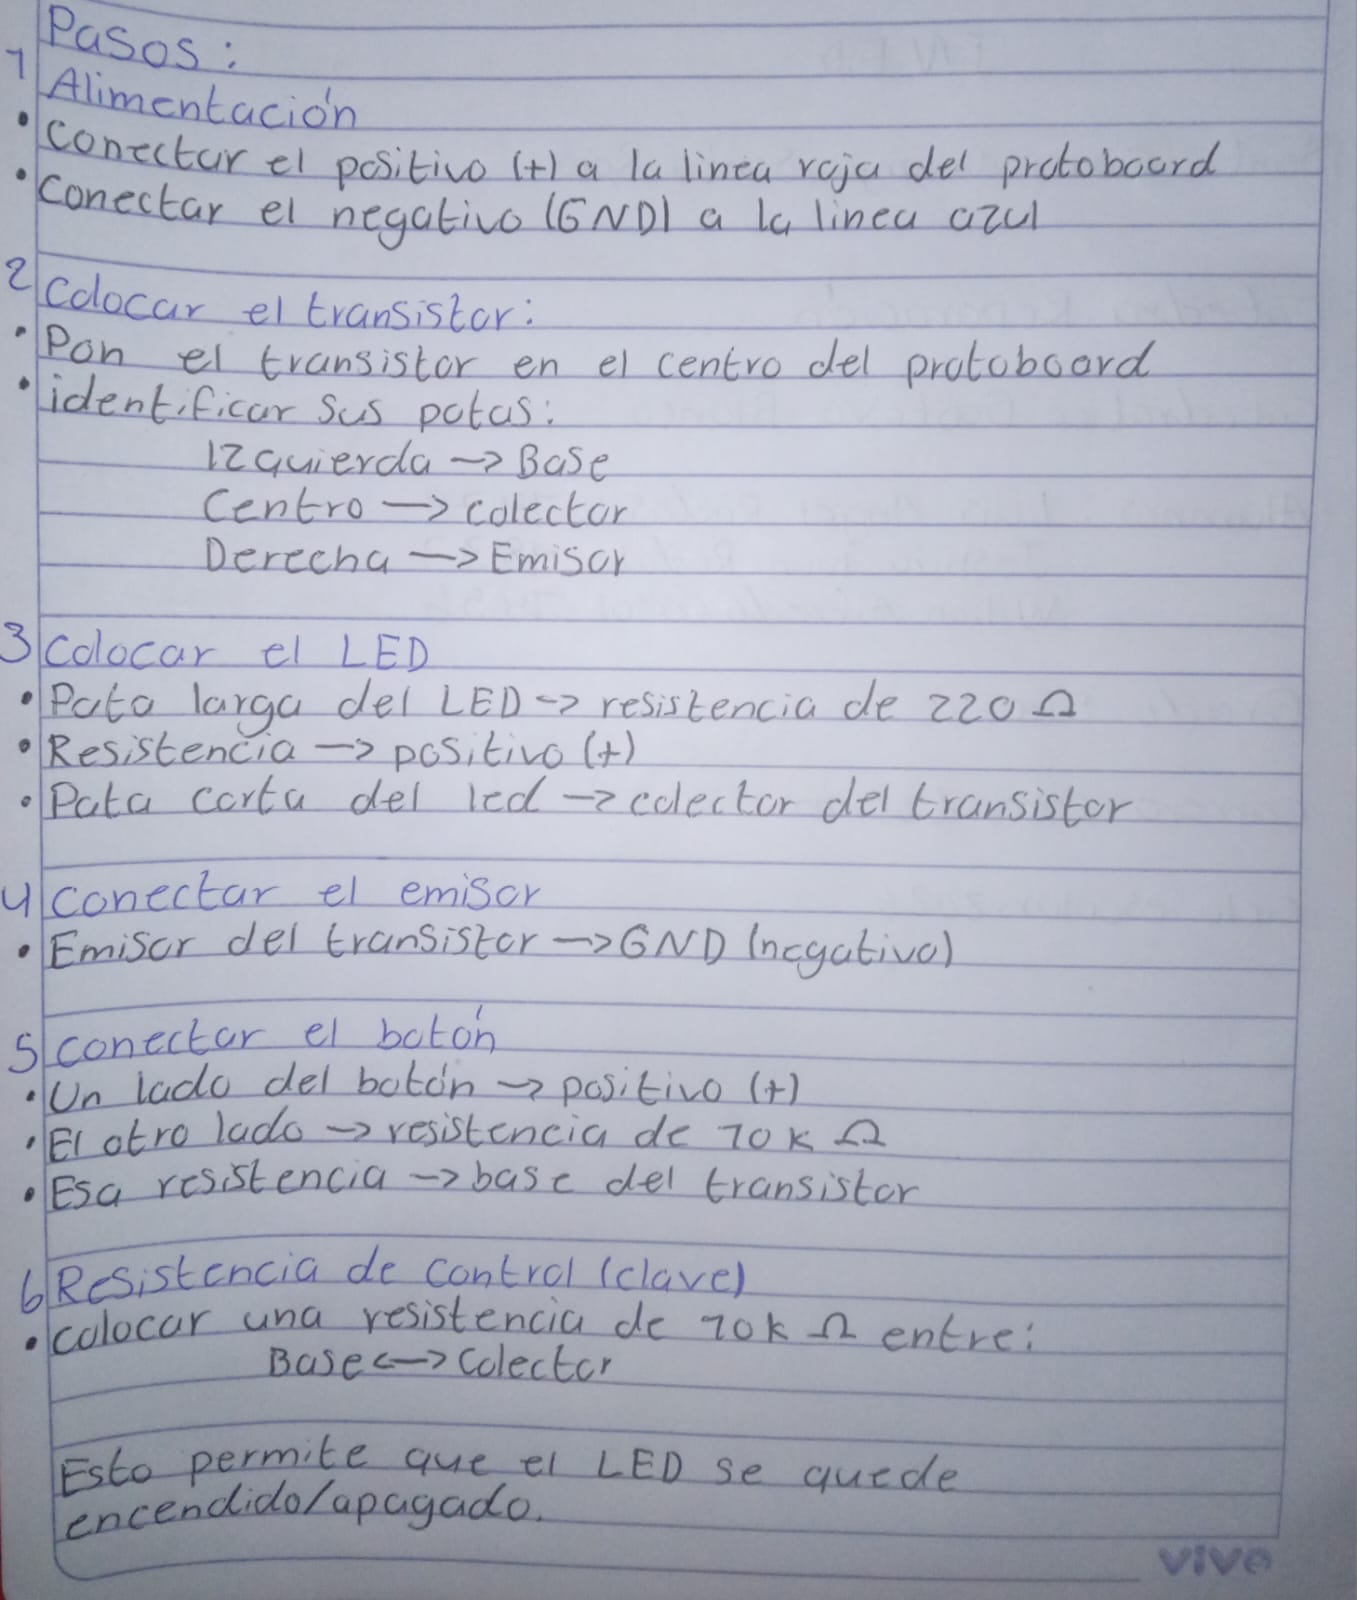 Pasos:
1 Alimentación
• Conectar el positivo (+) a la linea roja del protoboard
• Conectar el negativo (GND) a la linea azul
2 Colocar el transistor:
• Pon el transistor en el centro del protoboard
• identificar sus patas:
Izquierda → Base
Centro → colector
Derecha → Emisor
3 Colocar el LED
• Pata larga del LED → resistencia de 220 Ω
• Resistencia → positivo (+)
• Pata corta del led → colector del transistor
4 conectar el emisor
• Emisor del transistor → GND (negativo)
5 conectar el botón
• Un lado del botón → positivo (+)
• El otro lado → resistencia de 10k Ω
• Esa resistencia → base del transistor
6 Resistencia de control (clave)
• colocar una resistencia de 10k Ω entre:
Base <-> Colector
Esto permite que el LED se quede
encendido/apagado.
vivo